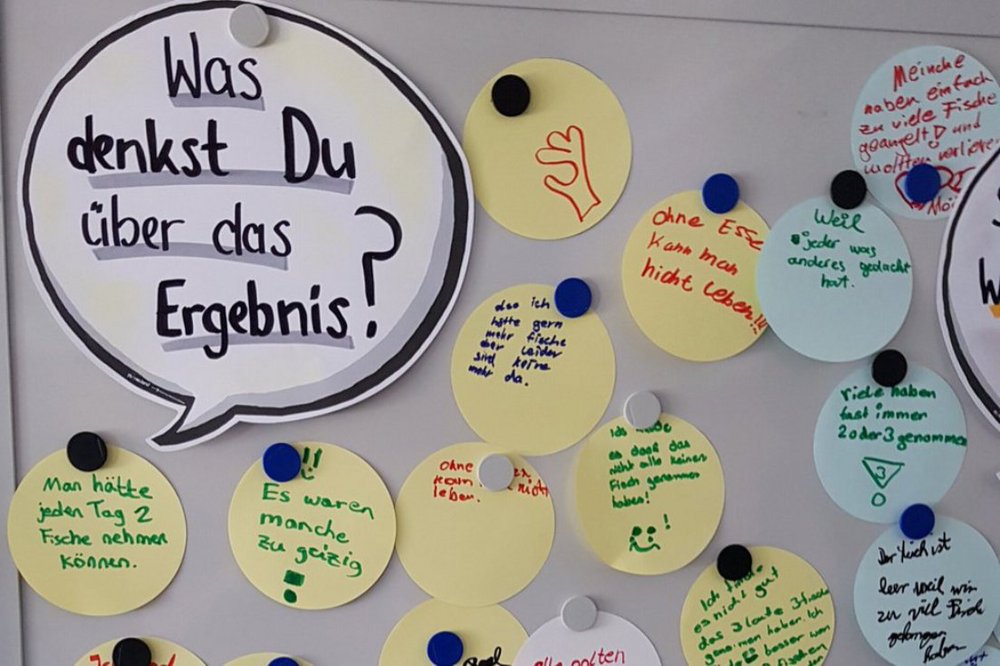 Was
denkst Du
über das
Ergebnis?
Meinche
haben einfach
zu viele Fische
geangelt! und
wollten
ohne Esse
kann man
nicht leben!!!
Weil
jeder was
anderes gedacht
hat.
also ich
hätte gern
mehr fische
aber leider
sind keine
mehr da.
viele haben
fast immen
2 oder 3 genommen
3
Man hätte
jeden Tag 2
Fische nehmen
können.
!!
Es waren
manche
zu geizig
!
ohne
kann nicht
leben.
Ich
es doof das
nicht alle keinen
Fisch genommen
haben!
!
Ich finde
es nicht gut
das 3 Leute 3 fische
genommen haben. Ich
besser wen
Der Teich ist
leer weil wir
zu viel Fische
gefangen
haben
alle sollten